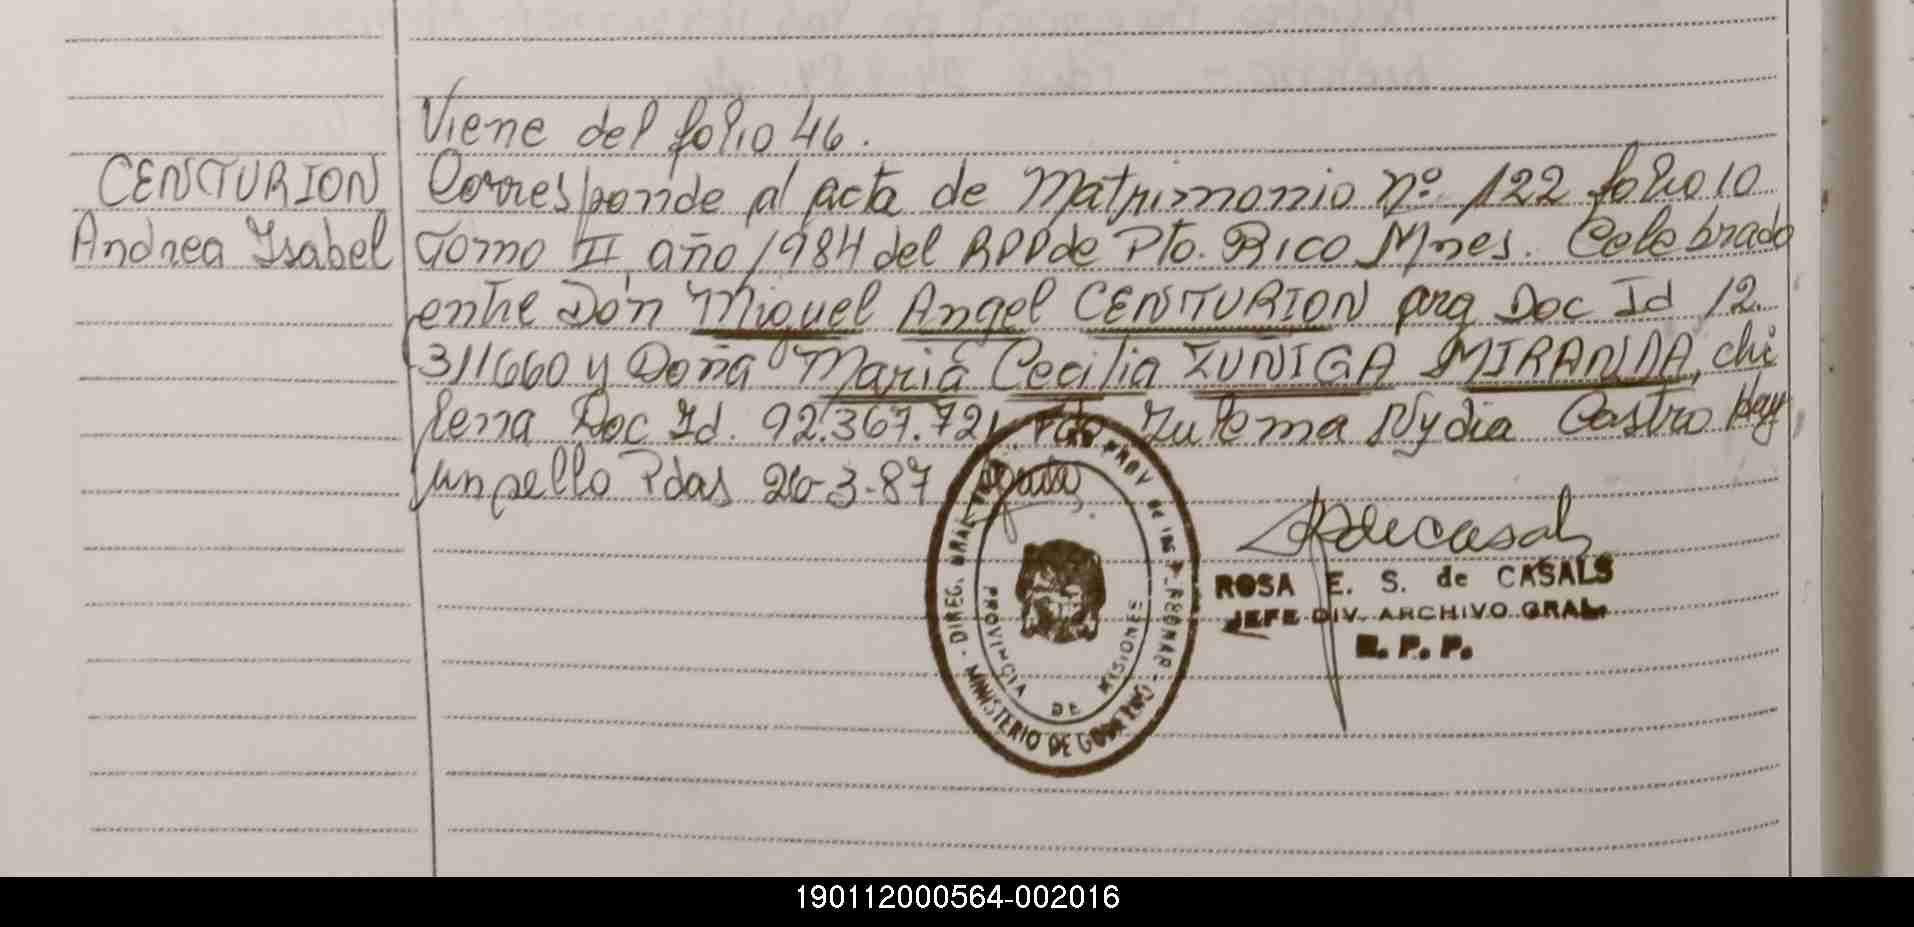 Viene del folio 46.
CENTURION
Andrea Isabel
Corresponde al acta de Matrimonio nº 122 folio 10
Tomo II año 1984 del RPP de Pto. Rico Mnes. Celebrado
entre Don Miguel Angel CENTURION arg Doc Id 12.
311660 y Doña Maria Cecilia ZUNIGA MIRANDA, chi
lena Doc Id. 92.367.721. Fdo Zulema Nydia Castro Hay
un sello Pdas 26-3-87
MINISTERIO DE GOBIERNO
PROVINCIA DE MISIONES
ROSA E. S. de CASALS
JEFE DIV. ARCHIVO GRAL.
R. P. P.
190112000564-002016